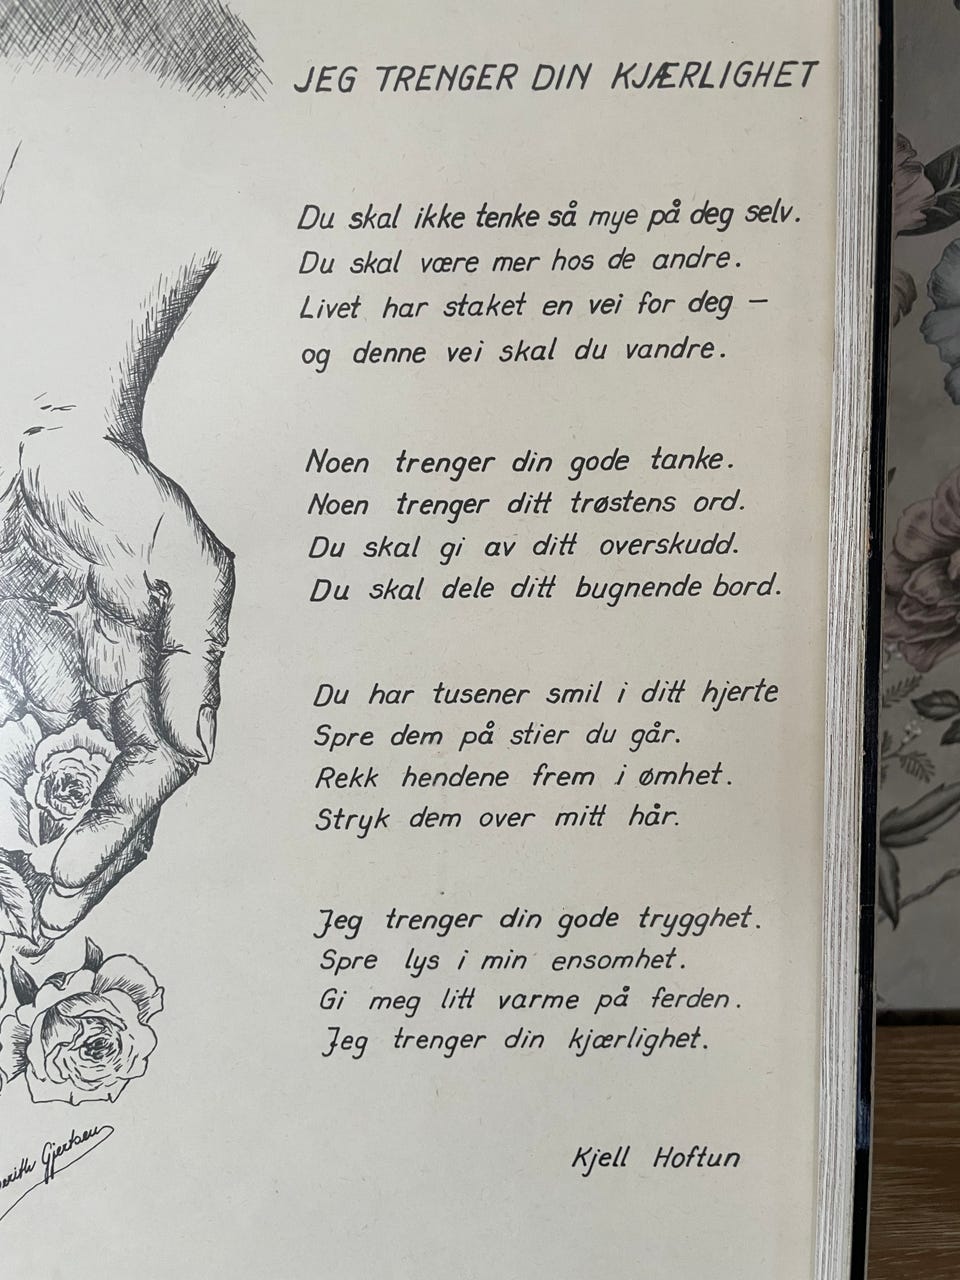 JEG TRENGER DIN KJÆRLIGHET
Du skal ikke tenke så mye på deg selv.
Du skal være mer hos de andre.
Livet har staket en vei for deg –
og denne vei skal du vandre.
Noen trenger din gode tanke.
Noen trenger ditt trøstens ord.
Du skal gi av ditt overskudd.
Du skal dele ditt bugnende bord.
Du har tusener smil i ditt hjerte
Spre dem på stier du går.
Rekk hendene frem i ømhet.
Stryk dem over mitt hår.
Jeg trenger din gode trygghet.
Spre lys i min ensomhet.
Gi meg litt varme på ferden.
Jeg trenger din kjærlighet.
Kjell Hoftun
Gjertsen